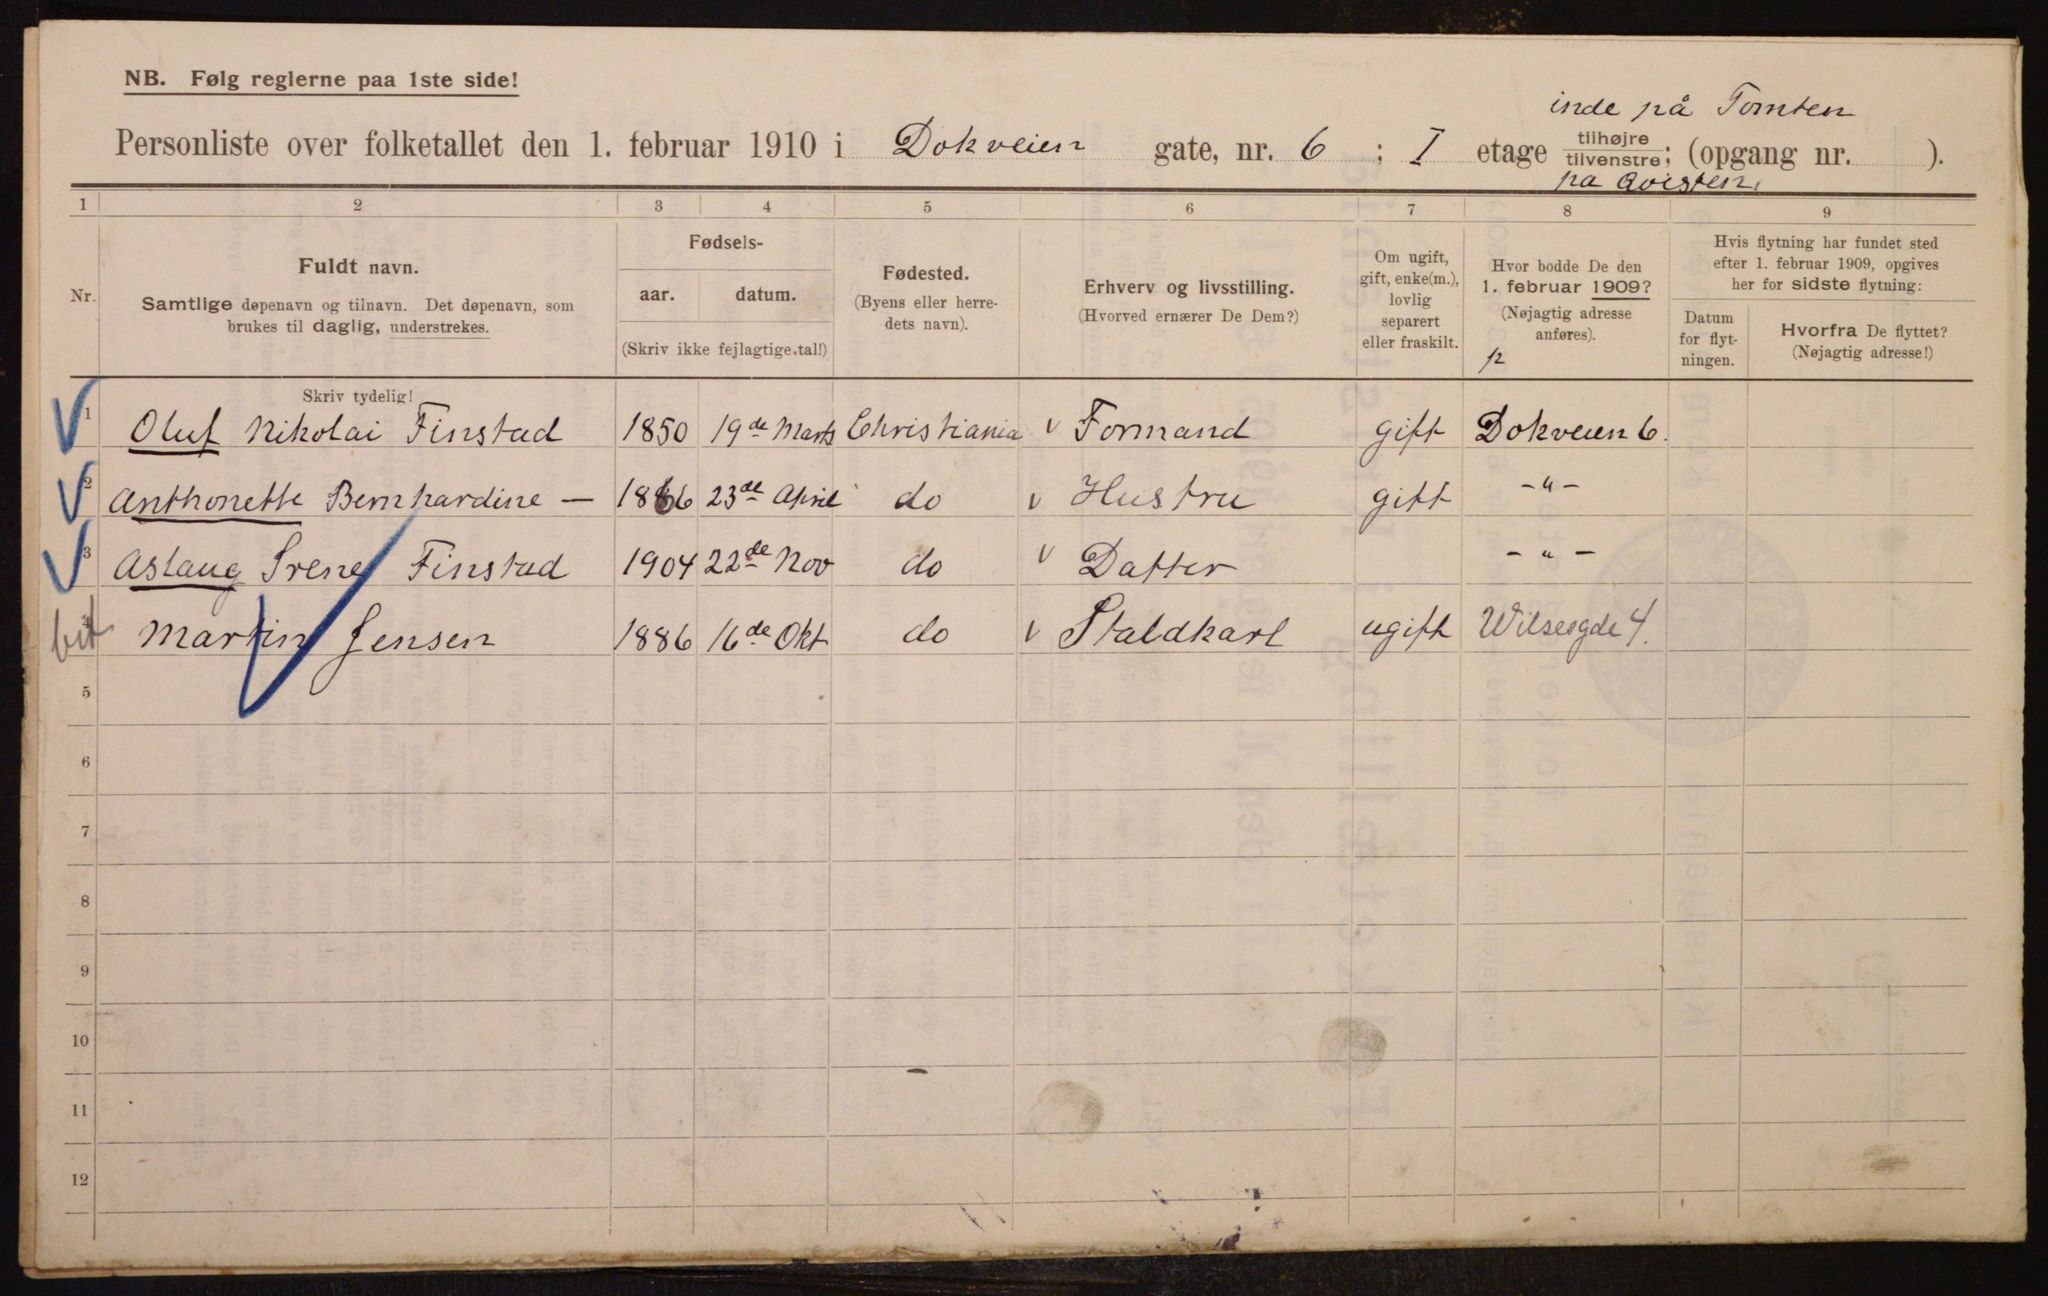 NB. Følg reglerne paa 1ste side!
inde på Tomten
Personliste over folketallet den 1. februar 1910 i Dokveien gate, nr. 6 ; I etage tilhøjre tilvenstre; (opgang nr. ).
på Qvisten.
1 2 3 4 5 6 7 8 9
Nr.
Fuldt navn.
Samtlige døpenavn og tilnavn. Det døpenavn, som
brukes til daglig, understrekes.
Fødsels-
aar. datum.
(Skriv ikke fejlagtige tal!)
Fødested.
(Byens eller herre-
dets navn).
Erhverv og livsstilling.
(Hvorved ernærer De Dem?)
Om ugift,
gift, enke(m.),
lovlig
separert
eller fraskilt.
Hvor bodde De den
1. februar 1909?
(Nøjagtig adresse
anføres).
Hvis flytning har fundet sted
efter 1. februar 1909, opgives
her for sidste flytning:
Datum
for flyt-
ningen.
Hvorfra De flyttet?
(Nøjagtig adresse!)
Skriv tydelig!
1 Oluf Nikolai Finstad 1850 19de Marts Christiania Formand gift Dokveien 6.
2 Anthonette Bernhardine — 23de April do Hustru gift -"-
3 Aslaug Irene Finstad 1904 22de Nov do Datter -"-
4 Martin Jensen 1886 16de Okt do Staldkarl ugift Wilsesgde 4.
5
6
7
8
9
10
11
12